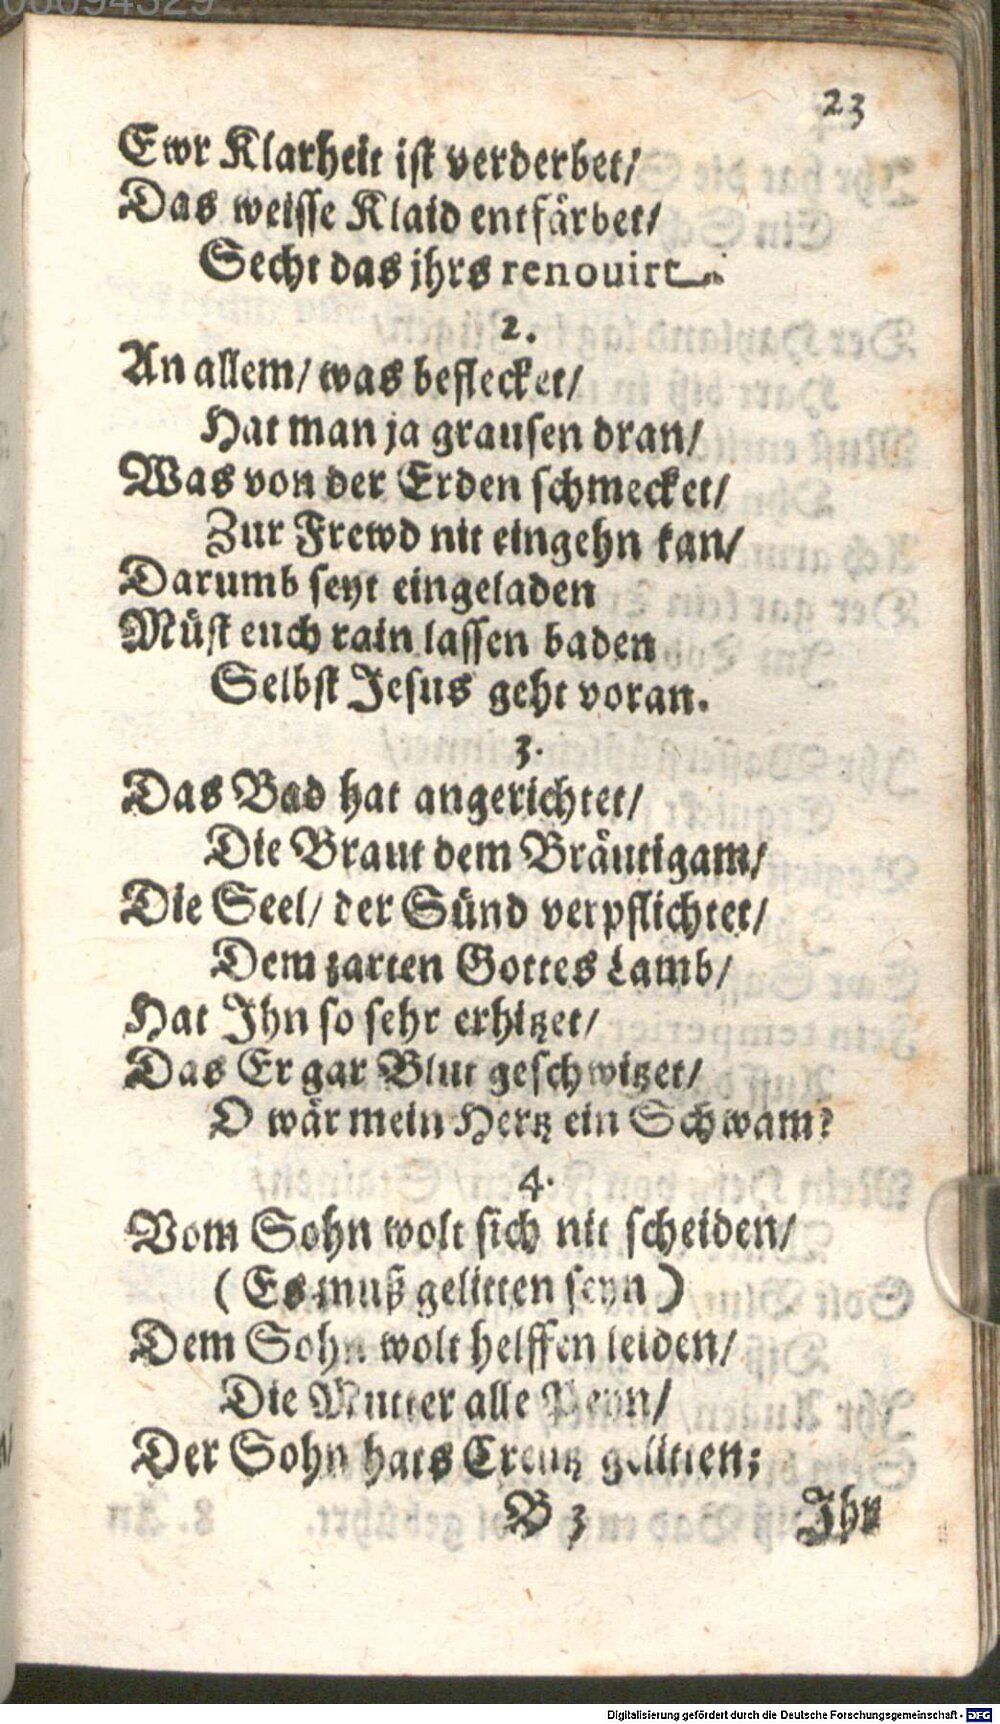 23
Ewr Klarheit ist verderbet/
Das weisse Klaid entfärbet/
Secht das jhrs renouirt.
2.
An allem/ was beflecket/
Hat man ja grausen dran/
Was von der Erden schmecket/
Zur Frewd nit eingehn kan/
Darumb seyt eingeladen
Müst euch rain lassen baden
Selbst Jesus geht voran.
3.
Das Bad hat angerichtet/
Die Braut dem Bräutigam/
Die Seel/ der Sünd verpflichtet/
Dem zarten Gottes Lamb/
Hat Ihn so sehr erhitzet/
Das Er gar Blut geschwitzet/
O wär mein Hertz ein Schwam?
4.
Vom Sohn wolt sich nit scheiden/
(Es muß gelitten seyn)
Dem Sohn wolt helffen leiden/
Die Mutter alle Peyn/
Der Sohn hats Creutz gelitten;
B 3
Ihn
Digitalisierung gefördert durch die Deutsche Forschungsgemeinschaft - DFG